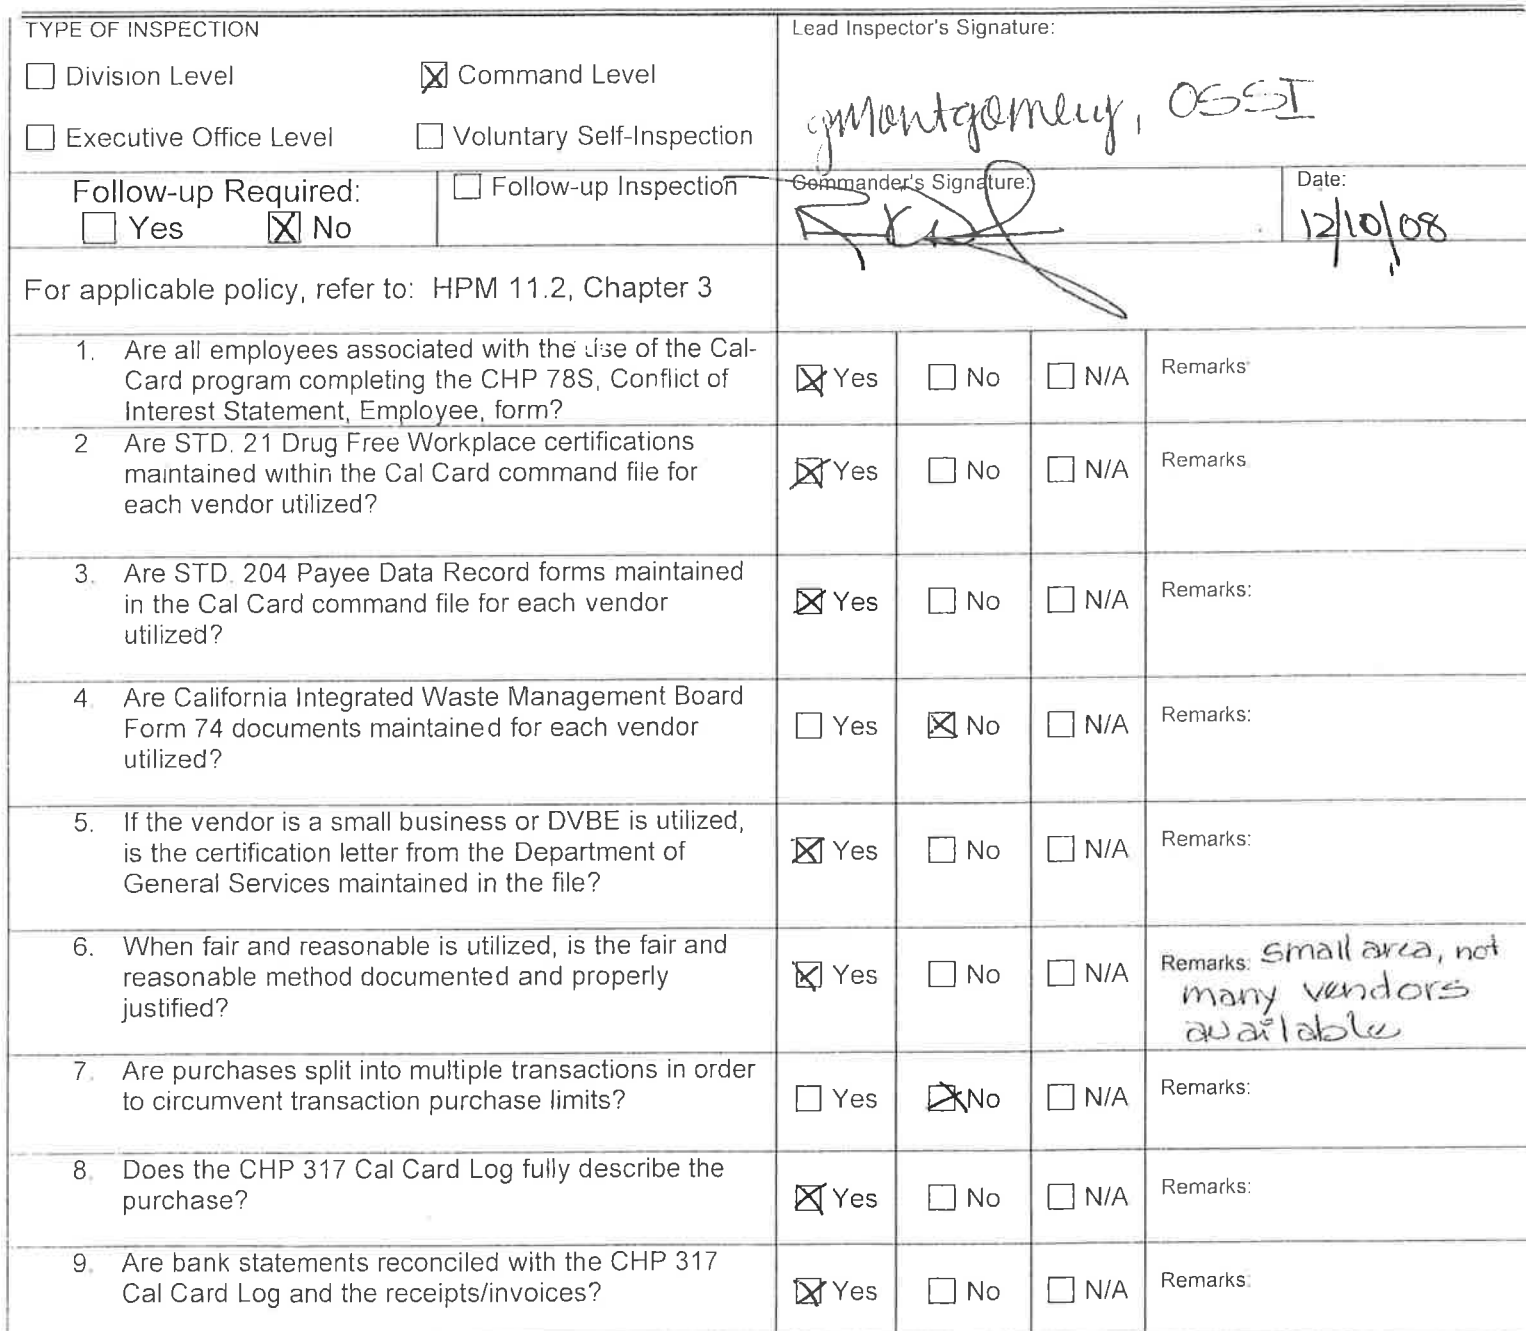 TYPE OF INSPECTION
Lead Inspector's Signature:
Division Level
Command Level
Montgomery, OSSI
Executive Office Level
Voluntary Self-Inspection
Follow-up Required:
Yes No
Follow-up Inspection
Commander's Signature:
Date:
12/10/08
For applicable policy, refer to: HPM 11.2, Chapter 3
1. Are all employees associated with the use of the Cal-
Card program completing the CHP 78S, Conflict of
Interest Statement, Employee, form?
Yes No N/A Remarks:
2 Are STD. 21 Drug Free Workplace certifications
maintained within the Cal Card command file for
each vendor utilized?
Yes No N/A Remarks
3. Are STD. 204 Payee Data Record forms maintained
in the Cal Card command file for each vendor
utilized?
Yes No N/A Remarks:
4. Are California Integrated Waste Management Board
Form 74 documents maintained for each vendor
utilized?
Yes No N/A Remarks:
5. If the vendor is a small business or DVBE is utilized,
is the certification letter from the Department of
General Services maintained in the file?
Yes No N/A Remarks:
6. When fair and reasonable is utilized, is the fair and
reasonable method documented and properly
justified?
Yes No N/A Remarks: small area, not
many vendors
available
7. Are purchases split into multiple transactions in order
to circumvent transaction purchase limits?
Yes No N/A Remarks:
8. Does the CHP 317 Cal Card Log fully describe the
purchase?
Yes No N/A Remarks:
9. Are bank statements reconciled with the CHP 317
Cal Card Log and the receipts/invoices?
Yes No N/A Remarks: